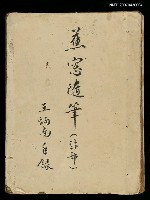 蕉窗隨筆（詩部）
王炳南自錄